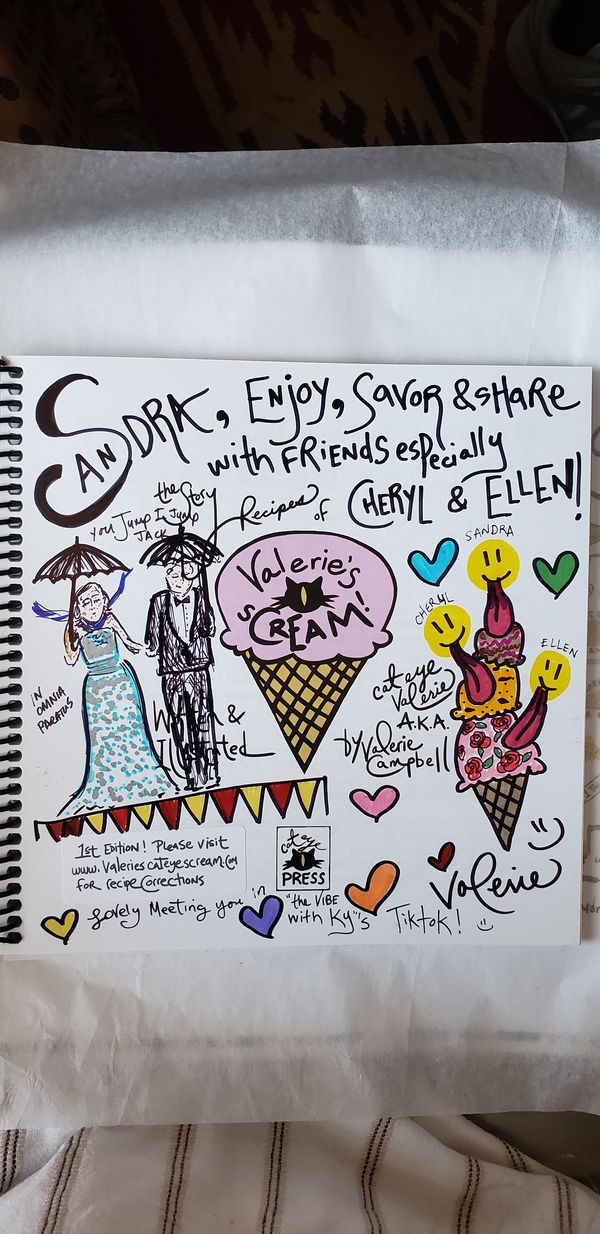 SANDRA, ENJOY, SAVOR & SHARE
with FRIENDS especially
CHERYL & ELLEN!
the Story
Recipes of
you Jump I Jump
JACK
Valerie's
SCREAM!
IN
OMNIA
PARATUS
SANDRA
CHERYL
ELLEN
cat eye
Valerie
A.K.A.
Written &
Illustrated
by Valerie
Campbell
1st Edition! Please visit
www.Valeriescateyescream.com
for recipe corrections
cat eye
PRESS
Valerie
Lovely Meeting you in "the VIBE
with Ky"s Tiktok!